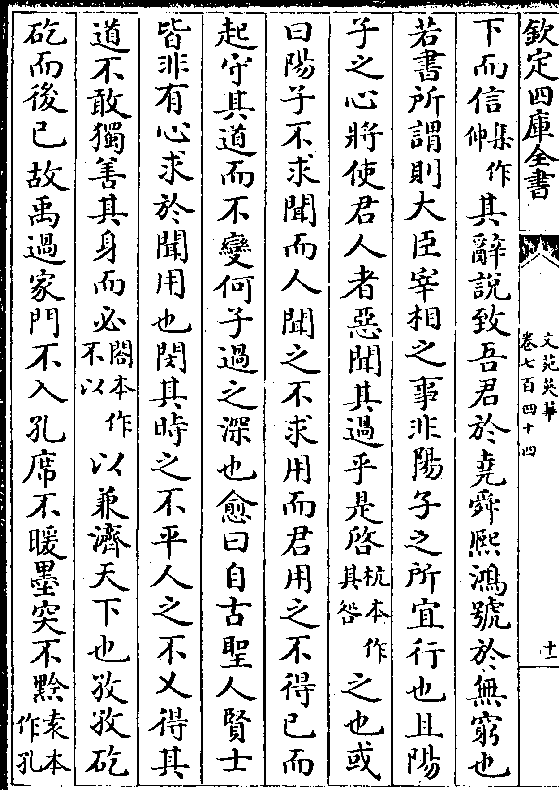 欽定四庫全書
文苑英華
卷七百四十四
十一
下而信集作伸其辭說致吾君於堯舜熙鴻號於無窮也
若書所謂則大臣宰相之事非陽子之所宜行也且陽
子之心將使君人者惡聞其過乎是啓杭本作其咎之也或
曰陽子不求聞而人聞之不求用而君用之不得已而
起守其道而不變何子過之深也愈曰自古聖人賢士
皆非有心求於聞用也閔其時之不平人之不乂得其
道不敢獨善其身而必閤本作不以以兼濟天下也孜孜矻
矻而後已故禹過家門不入孔席不暖墨突不黔袁本作孔